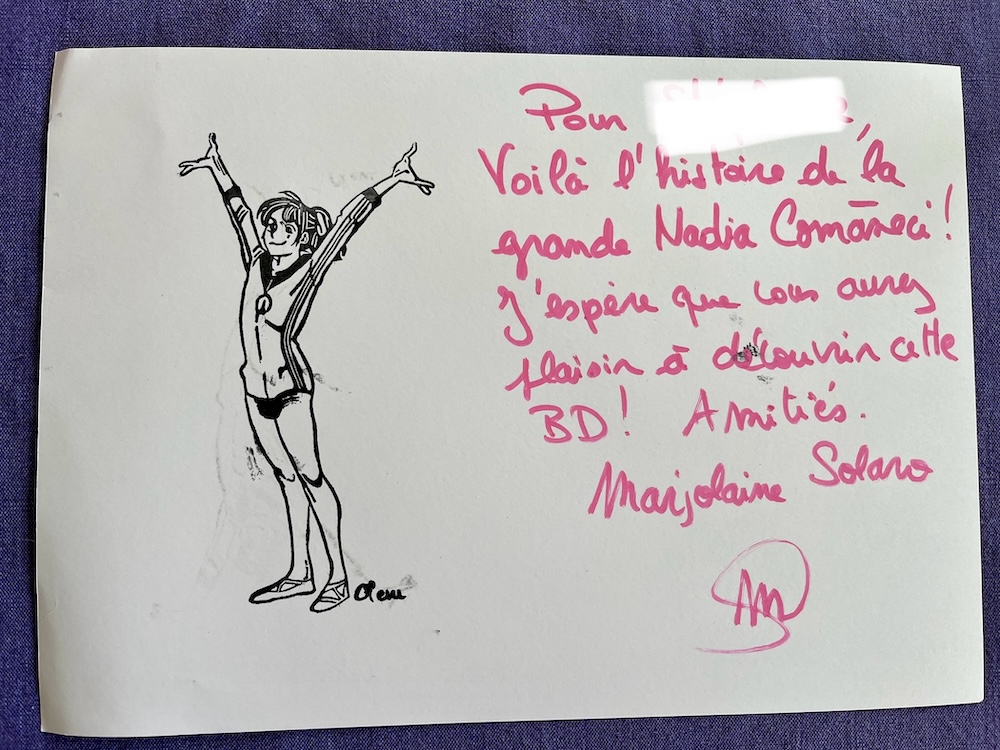 Pour
Voilà l'histoire de la
grande Nadia Comāneci !
J'espère que vous aurez
plaisir à découvrir cette
BD ! Amitiés.
Marjolaine Solaro